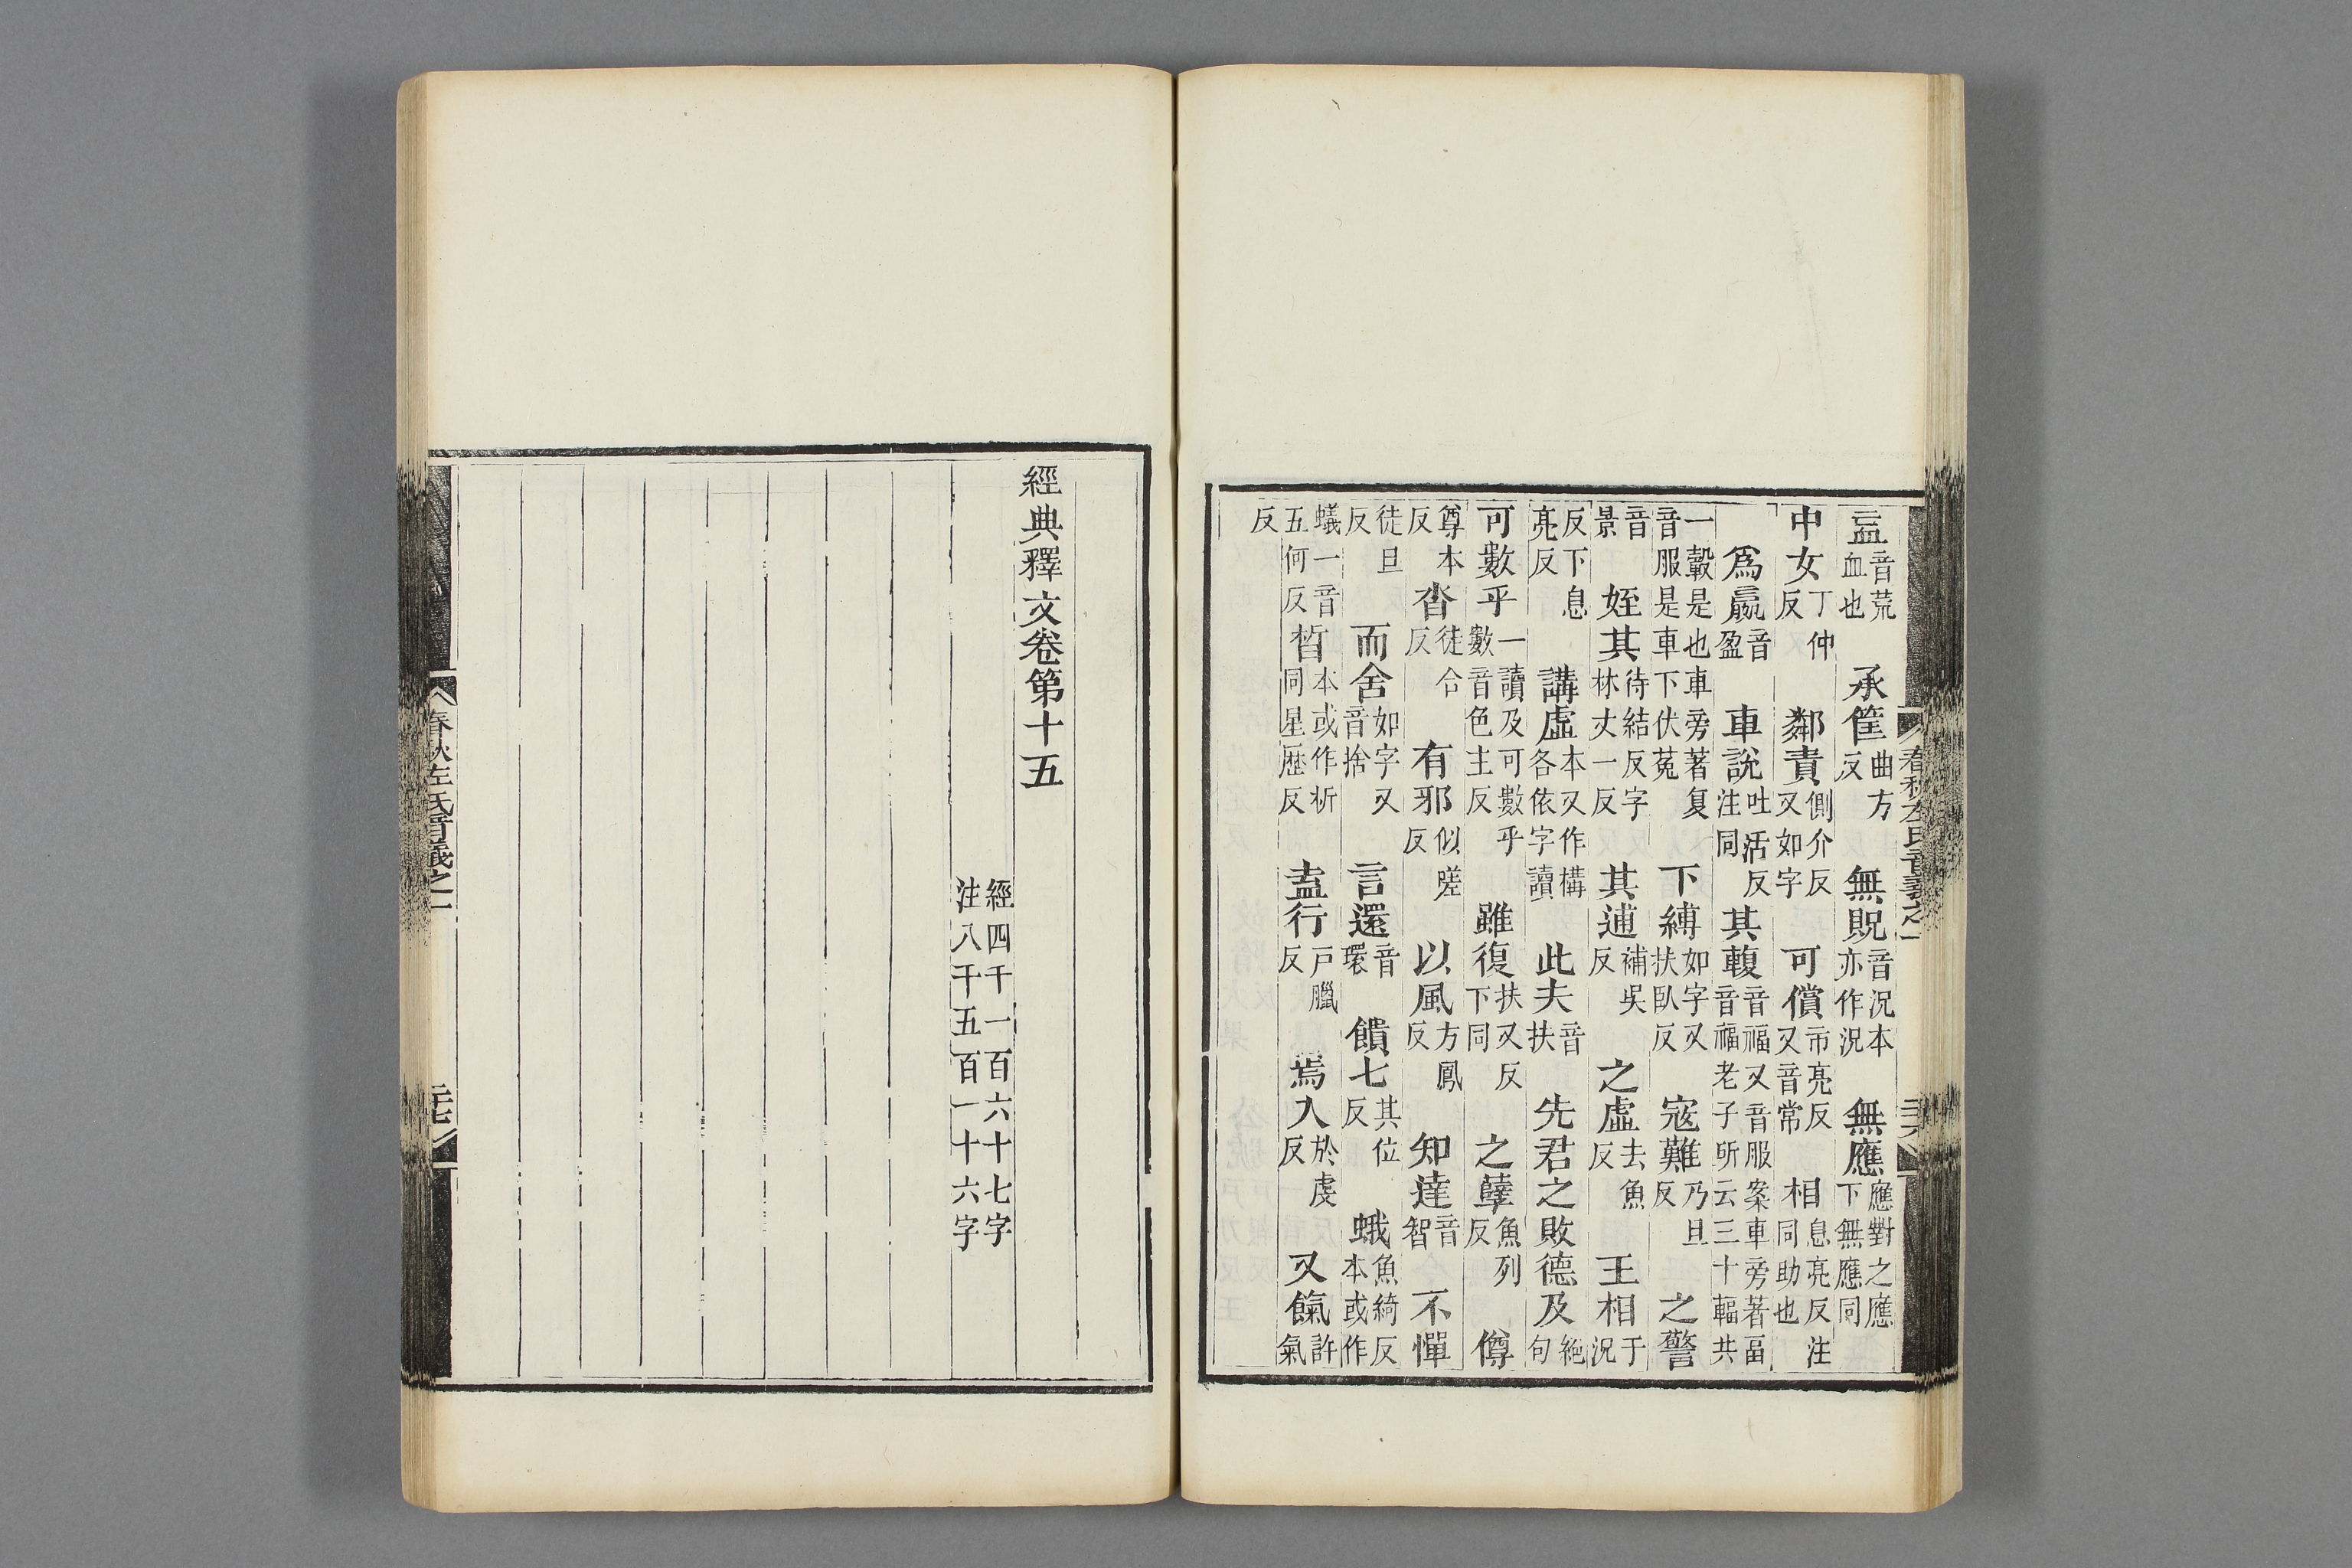 衁音荒血也 承筐曲方反 無貺音況本亦作況 無應應對之應下無應同
中女丁仲反 鄰責側介反又如字 可償市亮反又音常 相息亮反注同助也
爲嬴音盈 車說吐活反注同 其輹音福又音服案車旁著畐音福老子所云三十輻共
一轂是也車旁著复音服是車下伏菟 下縛如字又扶臥反 寇難乃旦反 之警
音景 姪其待結反字林丈一反 其逋補吳反 之虛去魚反 王相于況
反下息亮反 講虛本又作構各依字讀 此夫音扶 先君之敗德及絕句
可數乎一讀及可數乎數音色主反 雖復扶又反下同 之孽魚列反 僔
尊本反 沓徒合反 有邪似嗟反 以風方鳳反 知達音智 不憚
徒旦反 而舍如字又音捨 言還音環 饋七其位反 蛾魚綺反本或作
蟻一音五何反 晳本或作析同星歷反 盍行戶臘反 焉入於虔反 又餼許氣
反
經典釋文卷第十五
經四千一百六十七字
注八千五百一十六字
春秋左氏音義之一